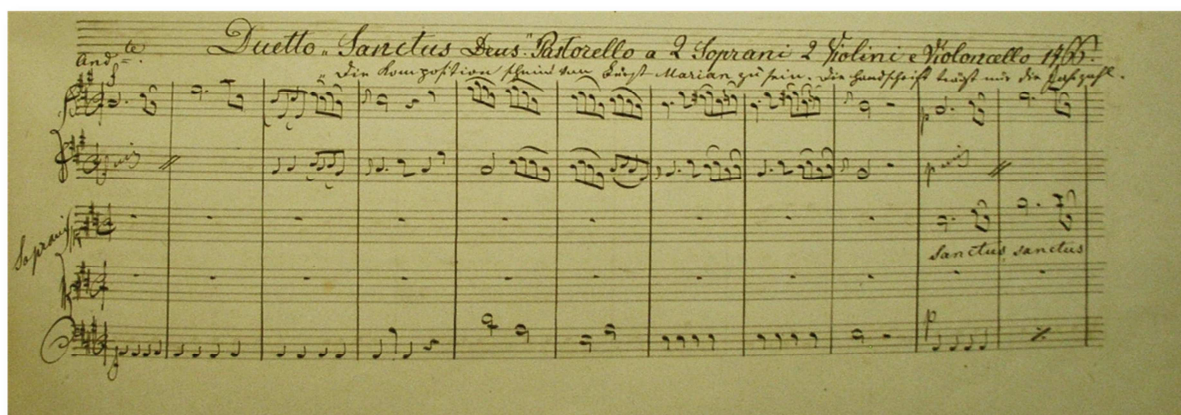 Duetto „Sanctus Deus“ Pastorello a 2 Soprani 2 Violini e Violoncello 1766.
And^te.
„Die Komposition scheint von Marian zu sein. Die Handschrift trägt nur die Jahrzahl.
p unis p
Soprani
Sanctus, sanctus
p